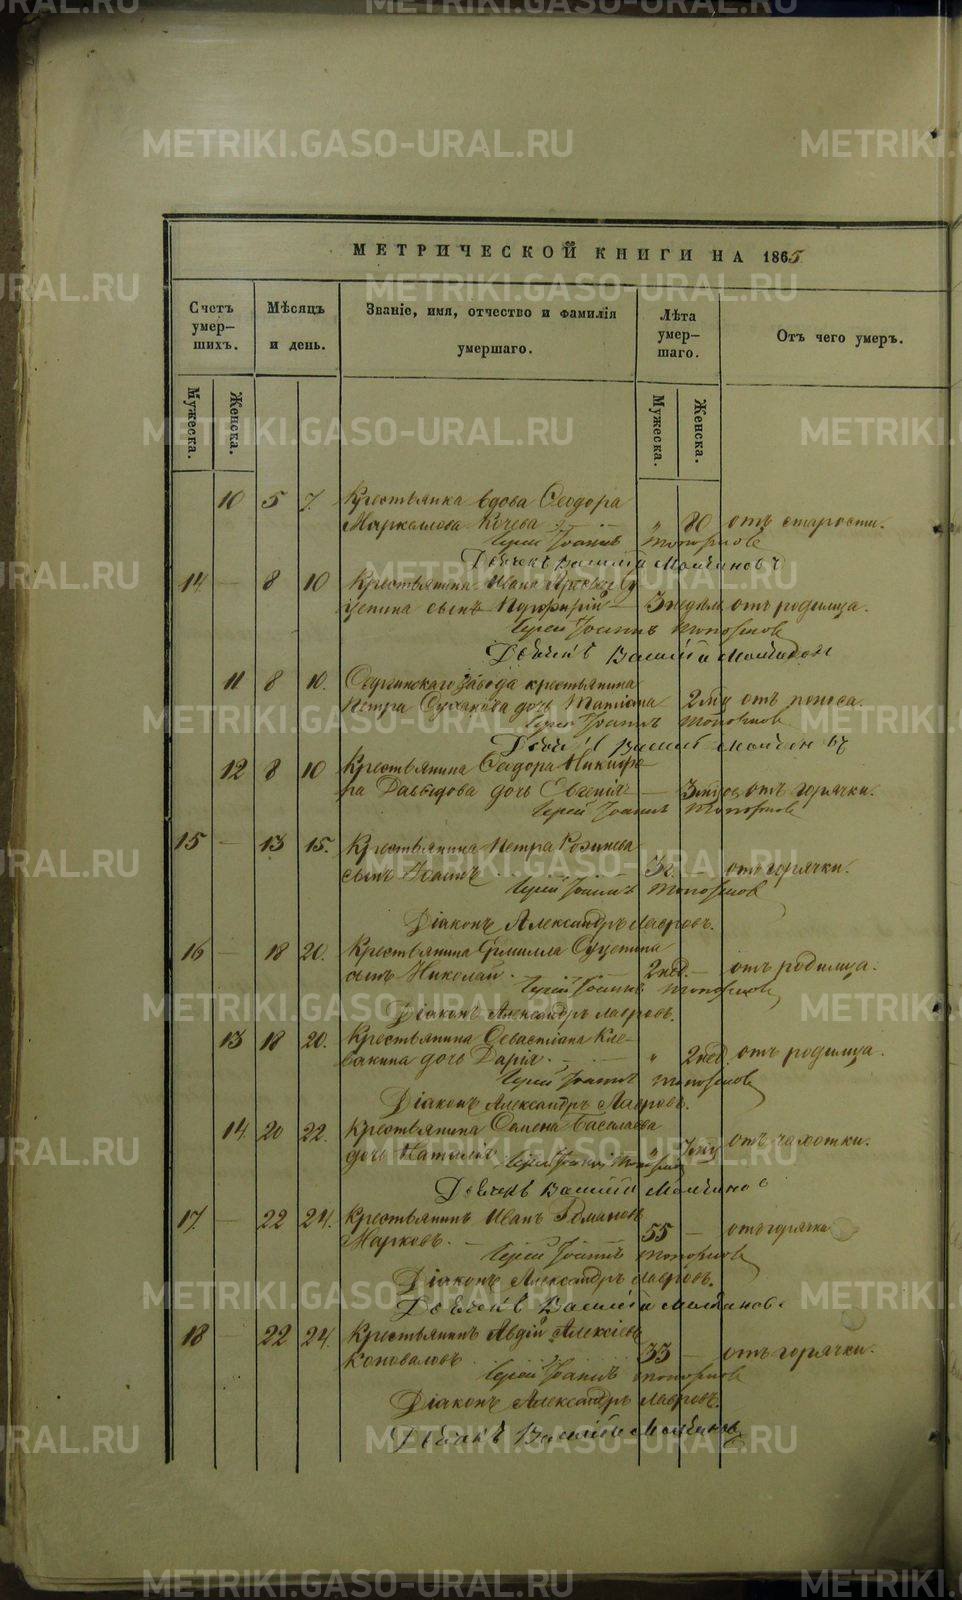 METRIKI.GASO-URAL.RU
МЕТРИЧЕСКОЙ КНИГИ НА 1865
Счетъ умер-шихъ.
Мѣсяцъ и день.
Званіе, имя, отчество и фамилія умершаго.
Лѣта умер-шаго.
Отъ чего умеръ.
Мужеска.
Женска.
Мужеска.
Женска.
10 5 7. Крестьянка вдова Ѳеодора
Кочева „ 80 отъ старости.
Іерей Іоаннъ Топорковъ
Дьячекъ Василій Молчановъ
14 — 8 10 Крестьянина Ивана
сынъ Порфирій 3 недѣл. отъ родимца.
Іерей Іоаннъ Топорковъ
Дьячекъ Василій Молчанов
11 8 10. завода крестьянина
Петра дочь 2 отъ поноса.
Іерей Іоаннъ Топорковъ
Дьячекъ Василій Молчановъ
12 8 10 Крестьянина Ѳеодора Никифо
ра Давыдова дочь Евгенія — 3 отъ горячки.
Іерей Іоаннъ Топорковъ
15 — 13 15. Крестьянина Петра
сынъ Іоаннъ 3 г. — отъ горячки.
Іерей Іоаннъ Топорковъ
Діаконъ Александръ Лавровъ.
16 — 18 20. Крестьянина
сынъ Николай. 2 нед. — отъ родимца.
Іерей Іоаннъ Топорковъ
Діаконъ Александръ Лавровъ.
13 18 20. Крестьянина Севастіана Кле-
вакина дочь Дарія. „ 2 нед. отъ родимца.
Іерей Іоаннъ Топорковъ
Діаконъ Александръ Лавровъ.
14 20 22. Крестьянина Семена
дочь Наталія „ отъ чахотки.
Іерей Іоаннъ Топорковъ
Дьячекъ Василій Молчанов
17. — 22 24. Крестьянинъ Иванъ
Марковъ. — 55 — отъ горячки
Іерей Іоаннъ Топорковъ
Діаконъ Александръ Лавровъ.
Дьячекъ Василій Молчановъ
18 — 22 24. Крестьянинъ Авдій Алексіевъ
Коноваловъ 33 — отъ горячки.
Іерей Іоаннъ Топорковъ
Діаконъ Александръ Лавровъ.
Дьячекъ Василій Молчановъ